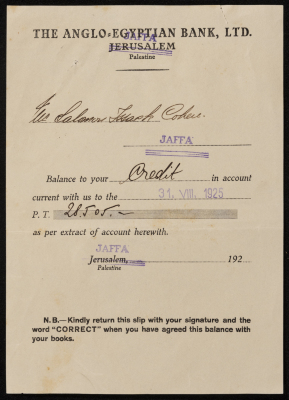 THE ANGLO-EGYPTIAN BANK, LTD.
JAFFA
JERUSALEM
Palestine
Salomon Isaack Cohen.
JAFFA
Balance to your Credit in account
current with us to the 31. VIII. 1925
P.T. 28505.-
as per extract of account herewith.
JAFFA
Jerusalem, 192...
Palestine
N.B.—Kindly return this slip with your signature and the
word "CORRECT" when you have agreed this balance with
your books.